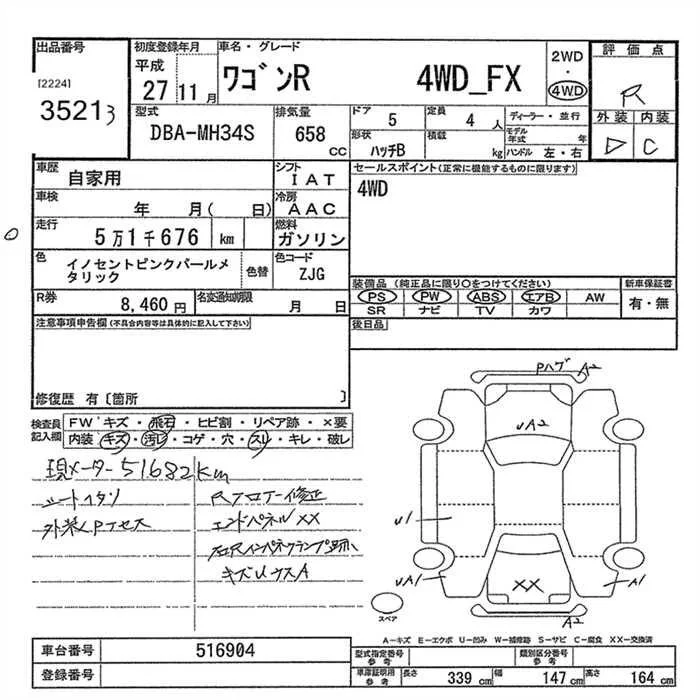 出品番号
[2224]
35213
初度登録年月
平成
27 11月
車名・グレード
ワゴンR 4WD_FX
2WD
・
4WD
評価点
R
外装 内装
D C
型式
DBA-MH34S
排気量
658 CC
ドア 5
定員 4 人
ディーラー・並行
形状 ハッチB
積載 kg
モデル年式 年
ハンドル 左・右
車歴
自家用
シフト
IAT
セールスポイント(正常に機能するものに限ります)
4WD
車検
年 月( 日)
冷房
AAC
走行
5万1千676 km
燃料
ガソリン
色
イノセントピンクパールメタリック
色替
色コード
ZJG
装備品 (純正品に限り○をつけてください)
新車保証書
PS PW ABS エアB AW
有・無
SR ナビ TV カワ
R券
8,460 円
名変通知期限
月 日
後日品
注意事項申告欄(不具合内容等は具体的に記入して下さい)
修復歴 有〔箇所 〕
検査員記入欄
FWキズ・飛石・ヒビ割・リペア跡・×要
内装 キズ・汚レ・コゲ・穴・スレ・キレ・破レ
現メーター51682Km
シートイタン
外装LPナセス
Rフロアー修正
エンドパネルXX
キズUウスA
Pハゲ A2
UA2
U1
UA1
A1
XX
A2
スペア
A-キズ E-エクボ U-凹み W-補修跡 S-サビ C-腐食 XX-交換済
車台番号
516904
登録番号
型式指定番号
参考
類別区分番号
参考
車庫証明用
参考
長さ 339 cm
幅 147 cm
高さ 164 cm